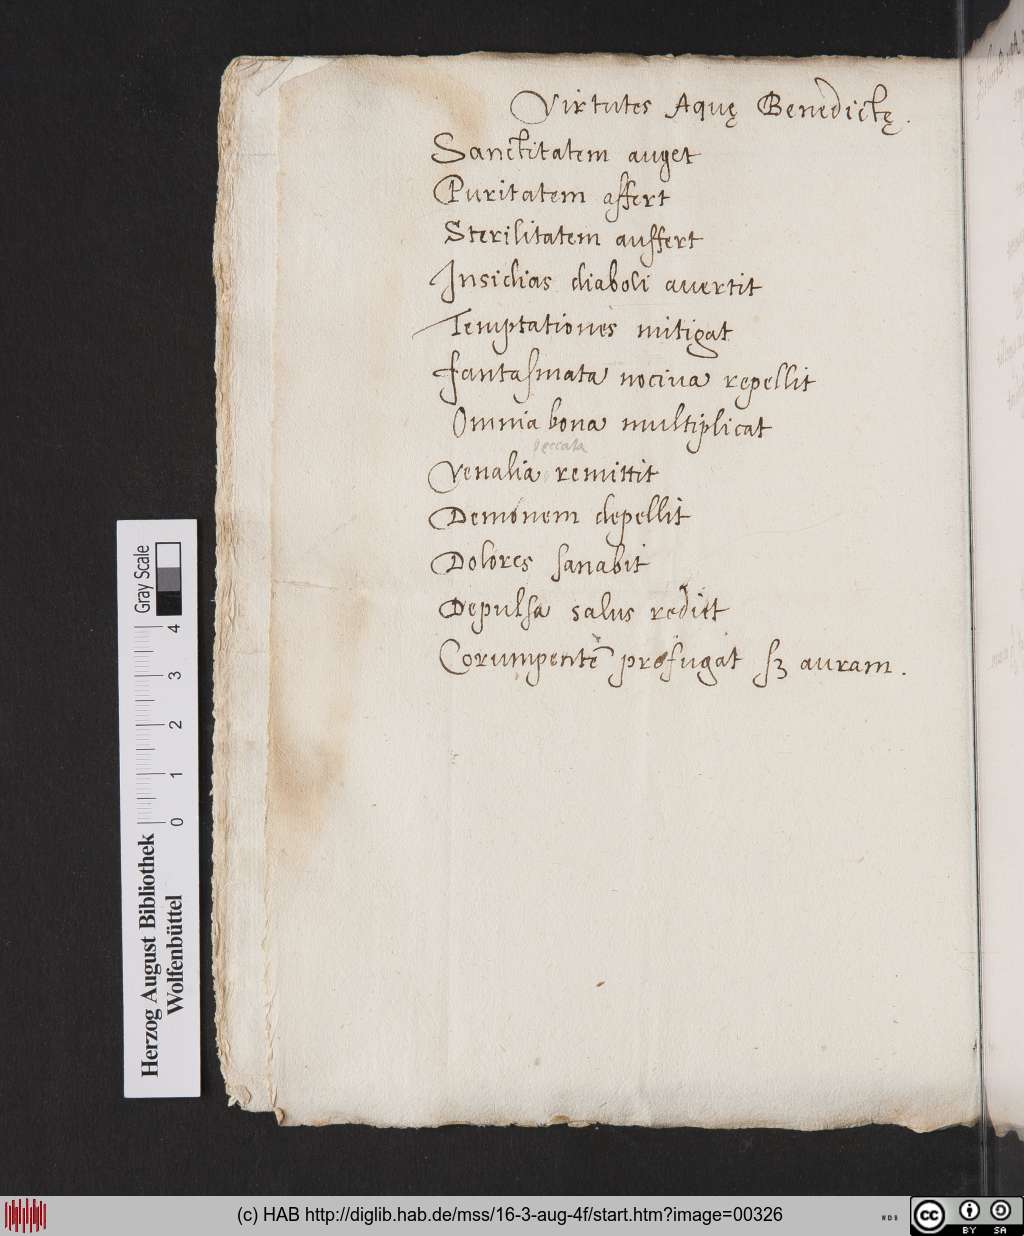 Virtutes Aquę Benedictę.
Sanctitatem auget
Puritatem affert
Sterilitatem auffert
Insidias diaboli auertit
Temptationes mitigat
fantasmata nociua repellit
Omnia bona multiplicat
peccata
Venalia remittit
Demonem depellit
Dolores sanabit
Depulsa salus redict
Corumpentē profugat sꝫ auram.
Gray Scale
4
3
2
1
0
Herzog August Bibliothek
Wolfenbüttel
(c) HAB http://diglib.hab.de/mss/16-3-aug-4f/start.htm?image=00326
WDB
cc
BY SA